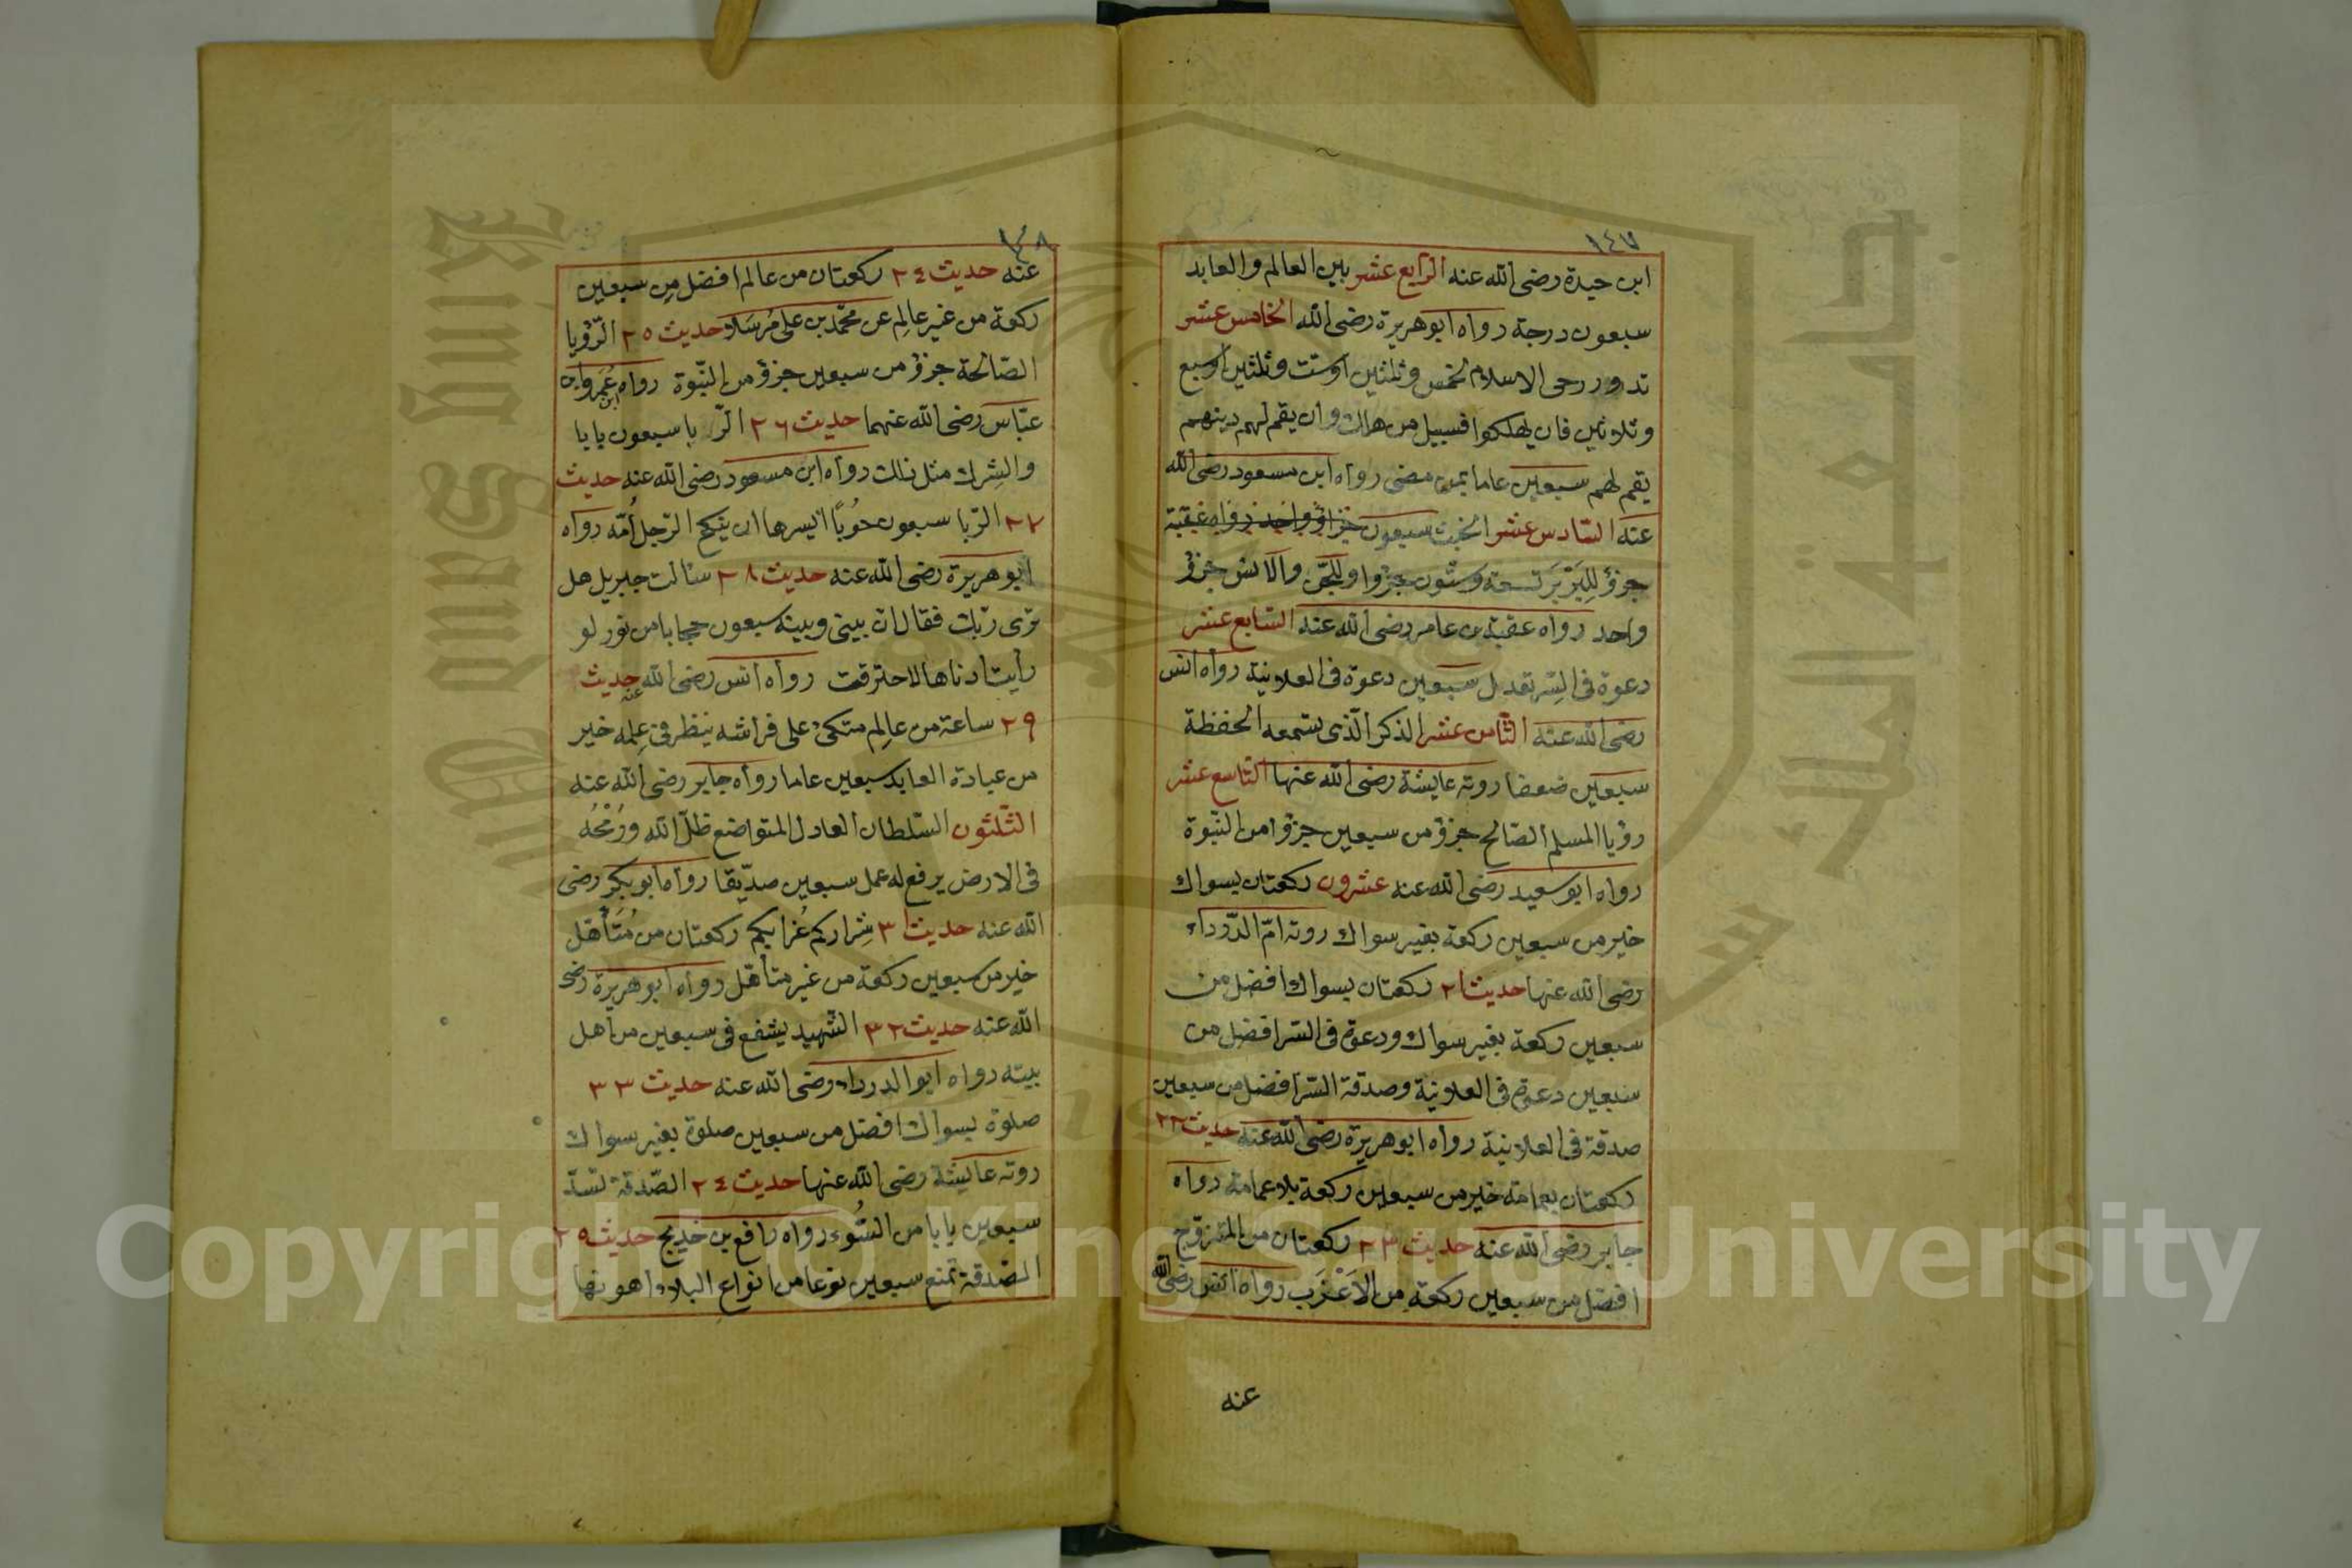 ١٤٧
ابن حيدة رضى الله عنه الرابع عشر بين العالم والعابد
سبعون درجة رواه ابو هريرة رضى الله الخامس عشر
تدور رحى الاسلام لخمس وثلثين اوست وثلثين اوسبع
وثلاثين فان يهلكوا فسبيل من هلك وان يقم لهم دينهم
يقم لهم سبعين عاما بمن مضى رواه ابن مسعود رضى الله
عنه السادس عشر الخبث سبعون جزاؤ واحد رواه عقبة
جزؤ للبَرْبَر تسعة وستون جزوا وللجن والانس جزؤ
واحد رواه عقبة بن عامر رضى الله عنه السابع عشر
دعوة فى السِّر تعدل سبعين دعوة فى العلانية رواه انس
رضى الله عنه الثامن عشر الذكر الّذى يسمعه الحفظة
سبعين ضعفا روته عايشة رضى الله عنها التاسع عشر
رؤيا المسلم الصّالح جزؤ من سبعين جزؤا من النبّوة
رواه ابو سعيد رضى الله عنه عشرون ركعتان بسواك
خير من سبعين ركعة بغير سواك روته امّ الدّرداء
رضى الله عنها حديث ٢١ ركعتان بسواك افضل من
سبعين ركعة بغير سواك ودعوة فى السّر افضل من
سبعين دعوة فى العلانية وصدقة السّر افضل من سبعين
صدقة فى العلانية رواه ابو هريرة رضى الله عنه حديث ٢٢
ركعتان بعمامة خير من سبعين ركعة بلا عمامة رواه
جابر رضى الله عنه حديث ٢٣ ركعتان من المتزوّج
افضل من سبعين ركعة من الاَعْزَب رواه انس رضى الله
عنه
١٤٨
عنه حديث ٢٤ ركعتان من عالم افضل من سبعين
ركعة من غير عالِم عن محمّد بن على مُرسَلا حديث ٢٥ الرّؤيا
الصّالحة جزؤ من سبعين جزؤ من النبّوة رواه ابن عُمَر وابن
عبّاس رضى الله عنهما حديث ٢٦ الرّبا سبعون بابا
والشِرك مثل ذلك رواه ابن مسعود رضى الله عنه حديث
٢٧ الرّبا سبعون حُوبًا ايسرها ان ينكح الرّجل اُمّه رواه
ابو هريرة رضى الله عنه حديث ٢٨ سئالت جبريل هل
ترى ربّك فقال ان بينى وبينه سبعون حجابا من نور لو
رأيت ادناها لاحترقت رواه انس رضى الله عنه حديث
٢٩ ساعة من عالِم متكئ على فراشه ينظر فى عِلمه خير
من عبادة العابد سبعين عاما رواه جابر رضى الله عنه
الثّلثون السّلطان العادل المتواضع ظلّ الله ورُمْحُه
فى الارض يرفع له عمل سبعين صدّيقا رواه ابو بكر رضى
الله عنه حديث ٣١ شِراركم عُزابكم ركعتان من مُتَأهّل
خير من سبعين ركعة من غير متأهّل رواه ابو هريرة رضى
الله عنه حديث ٣٢ الشّهيد يشفع فى سبعين من اهل
بيته رواه ابو الدرداء رضى الله عنه حديث ٣٣
صلوة بسواك افضل من سبعين صلوة بغير سواك
روته عايشة رضى الله عنها حديث ٢٤ الصّدقة تسّد
سبعين بابا من السُّوء رواه رافع بن خديج حديث ٢٥
الصّدقة تمنع سبعين نوعا من انواع البلاء اهونها
King Saud University
جامعة الملك سعود
Copyright © King Saud University